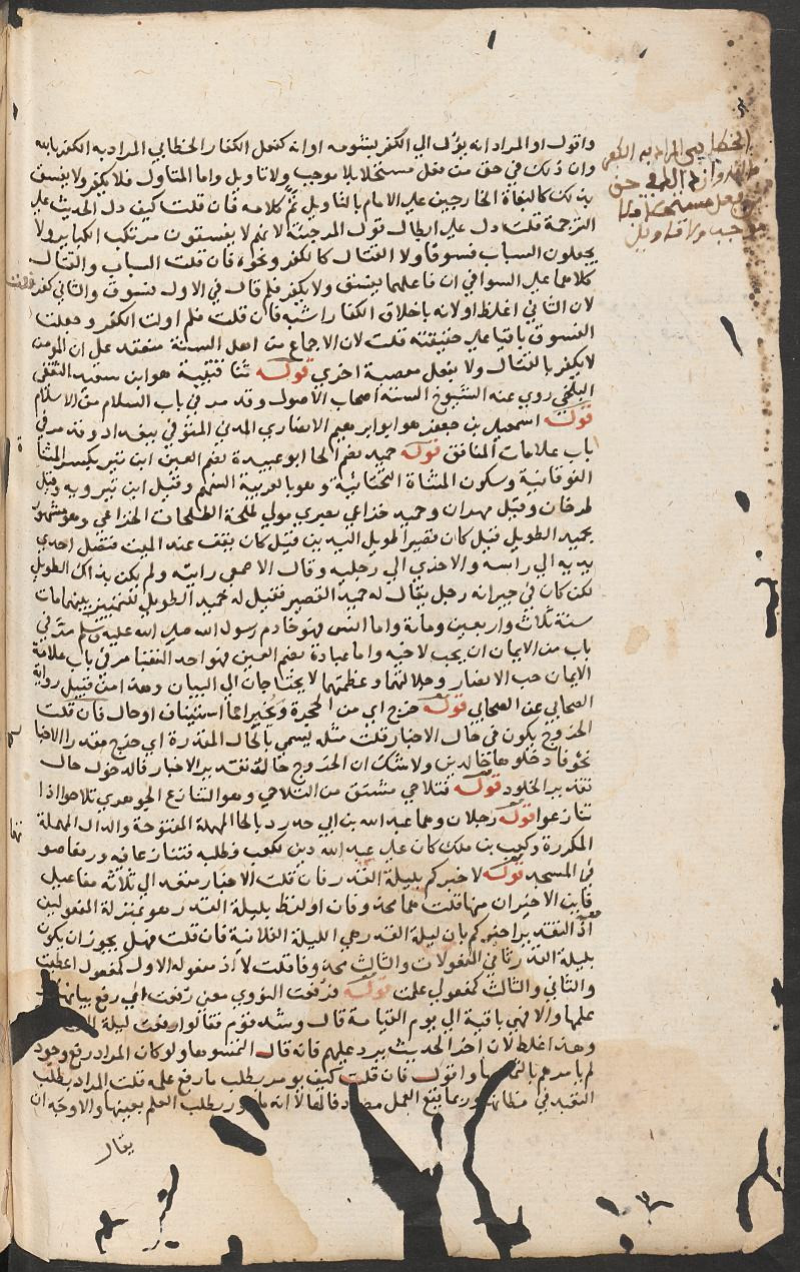 واقول او المراد انه يؤل الي الكفر بشومه او انه كفعل الكفار الخطابي المراد به الكفر بالله
وان ذلك في حق من فعل مستحلا بلا موجب ولا تاويل واما المتاول فلا يكفر ولا يفسق
بذلك كالبغاة الخارجين علي الامام بالتاويل تم كلامه فان قلت كيف دل الحديث علي
الترجمة قلت دل علي ابطال قول المرجئة لانهم لا يفسقون مرتكب الكباير ولا
يجعلون السباب فسوقا ولا القتال كالكفر ونحوه فان قلت السباب والقتال
كلاهما علي السوا في ان فاعلهما يفسق ولا يكفر فلم قال في الاول فسوق والثاني كفر قلت
لان الثاني اغلظ او لانه باخلاق الكفار اشبه فان قلت فلم اولت الكفر وجعلت
الفسوق باقيا علي حقيقته قلت لان الاجماع من اهل السنة منعقد علي ان المومن
لا يكفر بالقتال ولا بفعل معصية اخري قوله ثنا قتيبة هو ابن سعيد الثقفي
البلخي روي عنه الشيوخ الستة اصحاب الاصول وقد مر في باب السلام من الاسلام
قوله اسمعيل بن جعفر هو ابو ابرهيم الانصاري المدني المتوفي ببغداد وقد مر في
باب علامات المنافق قوله حميد بضم الحا ابو عبيدة بضم العين ابن تير بكسر المثناة
الفوقانية وسكون المثناة التحتانية وهو بالعربية السهم وقيل ابن تيرويه وقيل
طرخان وقيل مهران وحميد خزاعي بصري مولي طلحة الطلحات الخزاعي وهو مشهور
بحميد الطويل قيل كان قصيرا طويل اليدين قيل كان يقف عند الميت فتصل احدي
يديه الي راسه والاخري الي رجليه وقال الاصمعي رايته ولم يكن بذاك الطويل
لكن كان في جيرانه رجل يقال له حميد القصير فقيل له حميد الطويل للتمييز بينهما مات
سنة ثلاث واربعين وماية واما انس فهو خادم رسول الله صلي الله عليه وسلم مر في
باب من الايمان ان يحب لاخيه واما عبادة بضم العين فهو احد النقبا مر في باب علامة
الايمان حب الانصار وجلالتهما وعظمتهما لا يحتاجان الي البيان وهذا من قبيل رواية
الصحابي عن الصحابي قوله خرج اي من الحجرة ويخبر اما استيناف او حال فان قلت
الخروج يكون في حال الاخبار قلت مثله يسمي بالحال المقدرة اي خرج مقدرا الاخبار
نحو فادخلوها خالدين ولا شك ان الخروج حالة تقدير الاخبار فالدخول حال
تقدير الخلود قوله فتلاحي مشتق من التلاحي وهو التنازع الجوهري تلاحوا اذا
تنازعوا قوله رجلان وهما عبد الله بن ابي حدرد بالحا المهملة المفتوحة والدال المهملة
المكررة وكعب بن ملك كان علي عبد الله دين لكعب وطلبه فتنازعا فيه ورفعا صو
في المسجد قوله لاخبركم بليلة القدر فان قلت الاخبار متعد الي ثلاثة مفاعيل
فاين الاخيران منها قلت هما محذوفان او لفظ بليلة القدر هو بمنزلة المفعولين
اذ التقدير اخبركم بان ليلة القدر هي الليلة الفلانية فان قلت فهل يجوز ان يكون
بليلة القدر ثاني المفعولات والثالث محذوفا قلت لا اذ مفعوله الاول كمفعول اعطيت
والثاني والثالث كمفعولي علمت قوله فرفعت النووي معني رفعت اي رفع بيانها
علمها والا فهي باقية الي يوم القيامة قال وشذ قوم فقالوا رفعت ليلة
وهذا غلط لان اخر الحديث يرد عليهم فانه قال التمسوها ولو كان المراد رفع وجودها
لم يامرهم بالتماسها واقول فان قلت كيف يومر بطلب ما رفع علمه قلت المراد بطلب
التعبد في مظانها وربما يقع العمل مصادفا لها لا انه مامور بطلب العلم بعينها والاوجه ان
يقال
الخطابي المراد به الكفر
بالله وان ذلك في حق
من فعل مستحلا بلا
موجب ولا تاويل